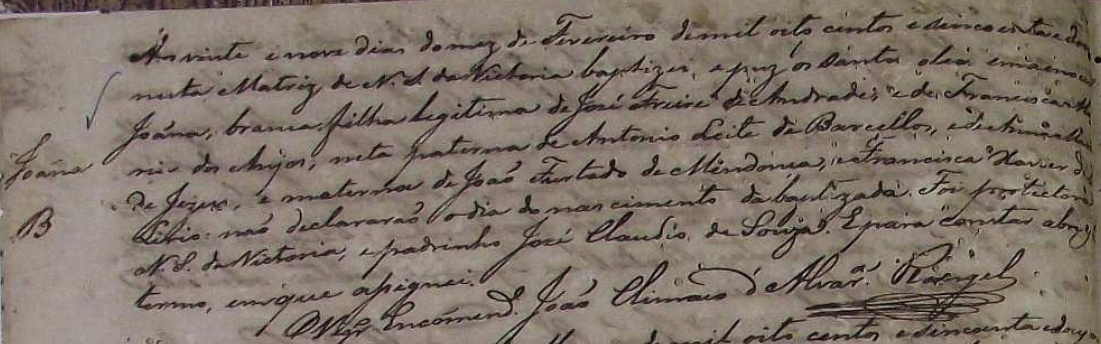 Aos vinte e nove dias do mez de Fevereiro de mil oito centos e sincoenta e dous
nesta Matriz de N. S. da Victoria baptizei, e puz os Santos oleos
Joanna, branca, filha legitima de José Freire de Andrade, e de Francisca
Joãna
ria dos Anjos; neta paterna de Antonio Leite de Barcellos, e de Anna
B
de Jezus, e materna de João Furtado de Mendonça, e Francisca Xavier d
não declararão o dia do nascimento da baptizada. Foi protectora
N. S. da Victoria, e padrinho José Claudio de Souza. E para constar abri
termo, em que assignei.
O Vigr.º Encomend.º João Climaco d'Alvar.ª Rangel
de mil oito centos e sincoenta e dous